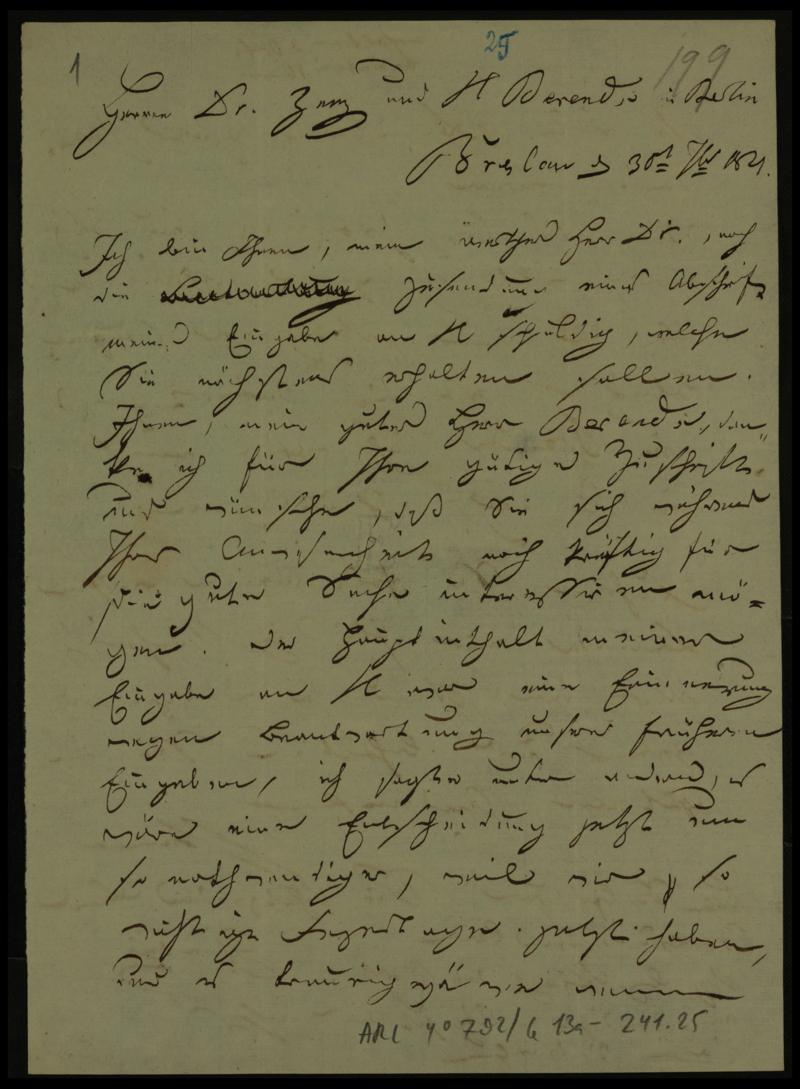 1
25
199
Herrn Dr. Zunz und H Berends in Berlin
Breslau d 30t 7br 1821.
Ich bin Ihnen, mein werther Herr Dr., noch
die Zusendung einer Abschrift
meiner Eingabe an H schuldig, welche
Sie nächstens erhalten sollen.
Ihnen, mein guter Herr Berends, dan
ke ich für Ihre gütige Zuschrift
und wünsche, daß Sie sich während
Ihrer Anwesenheit noch kräftig für
die gute Sache interessiren mö=
gen. Der Hauptinhalt meiner
Eingabe an H war eine Erinnerung
wegen Beantwortung unsrer frühern
Eingaben, ich sagte unter andern, es
wäre eine Entscheidung jetzt um
so nothwendiger, weil wir so
wichtige Festtage jetzt haben,
und es traurig wäre wenn
ARC 4° 792/ 13a- 241.25